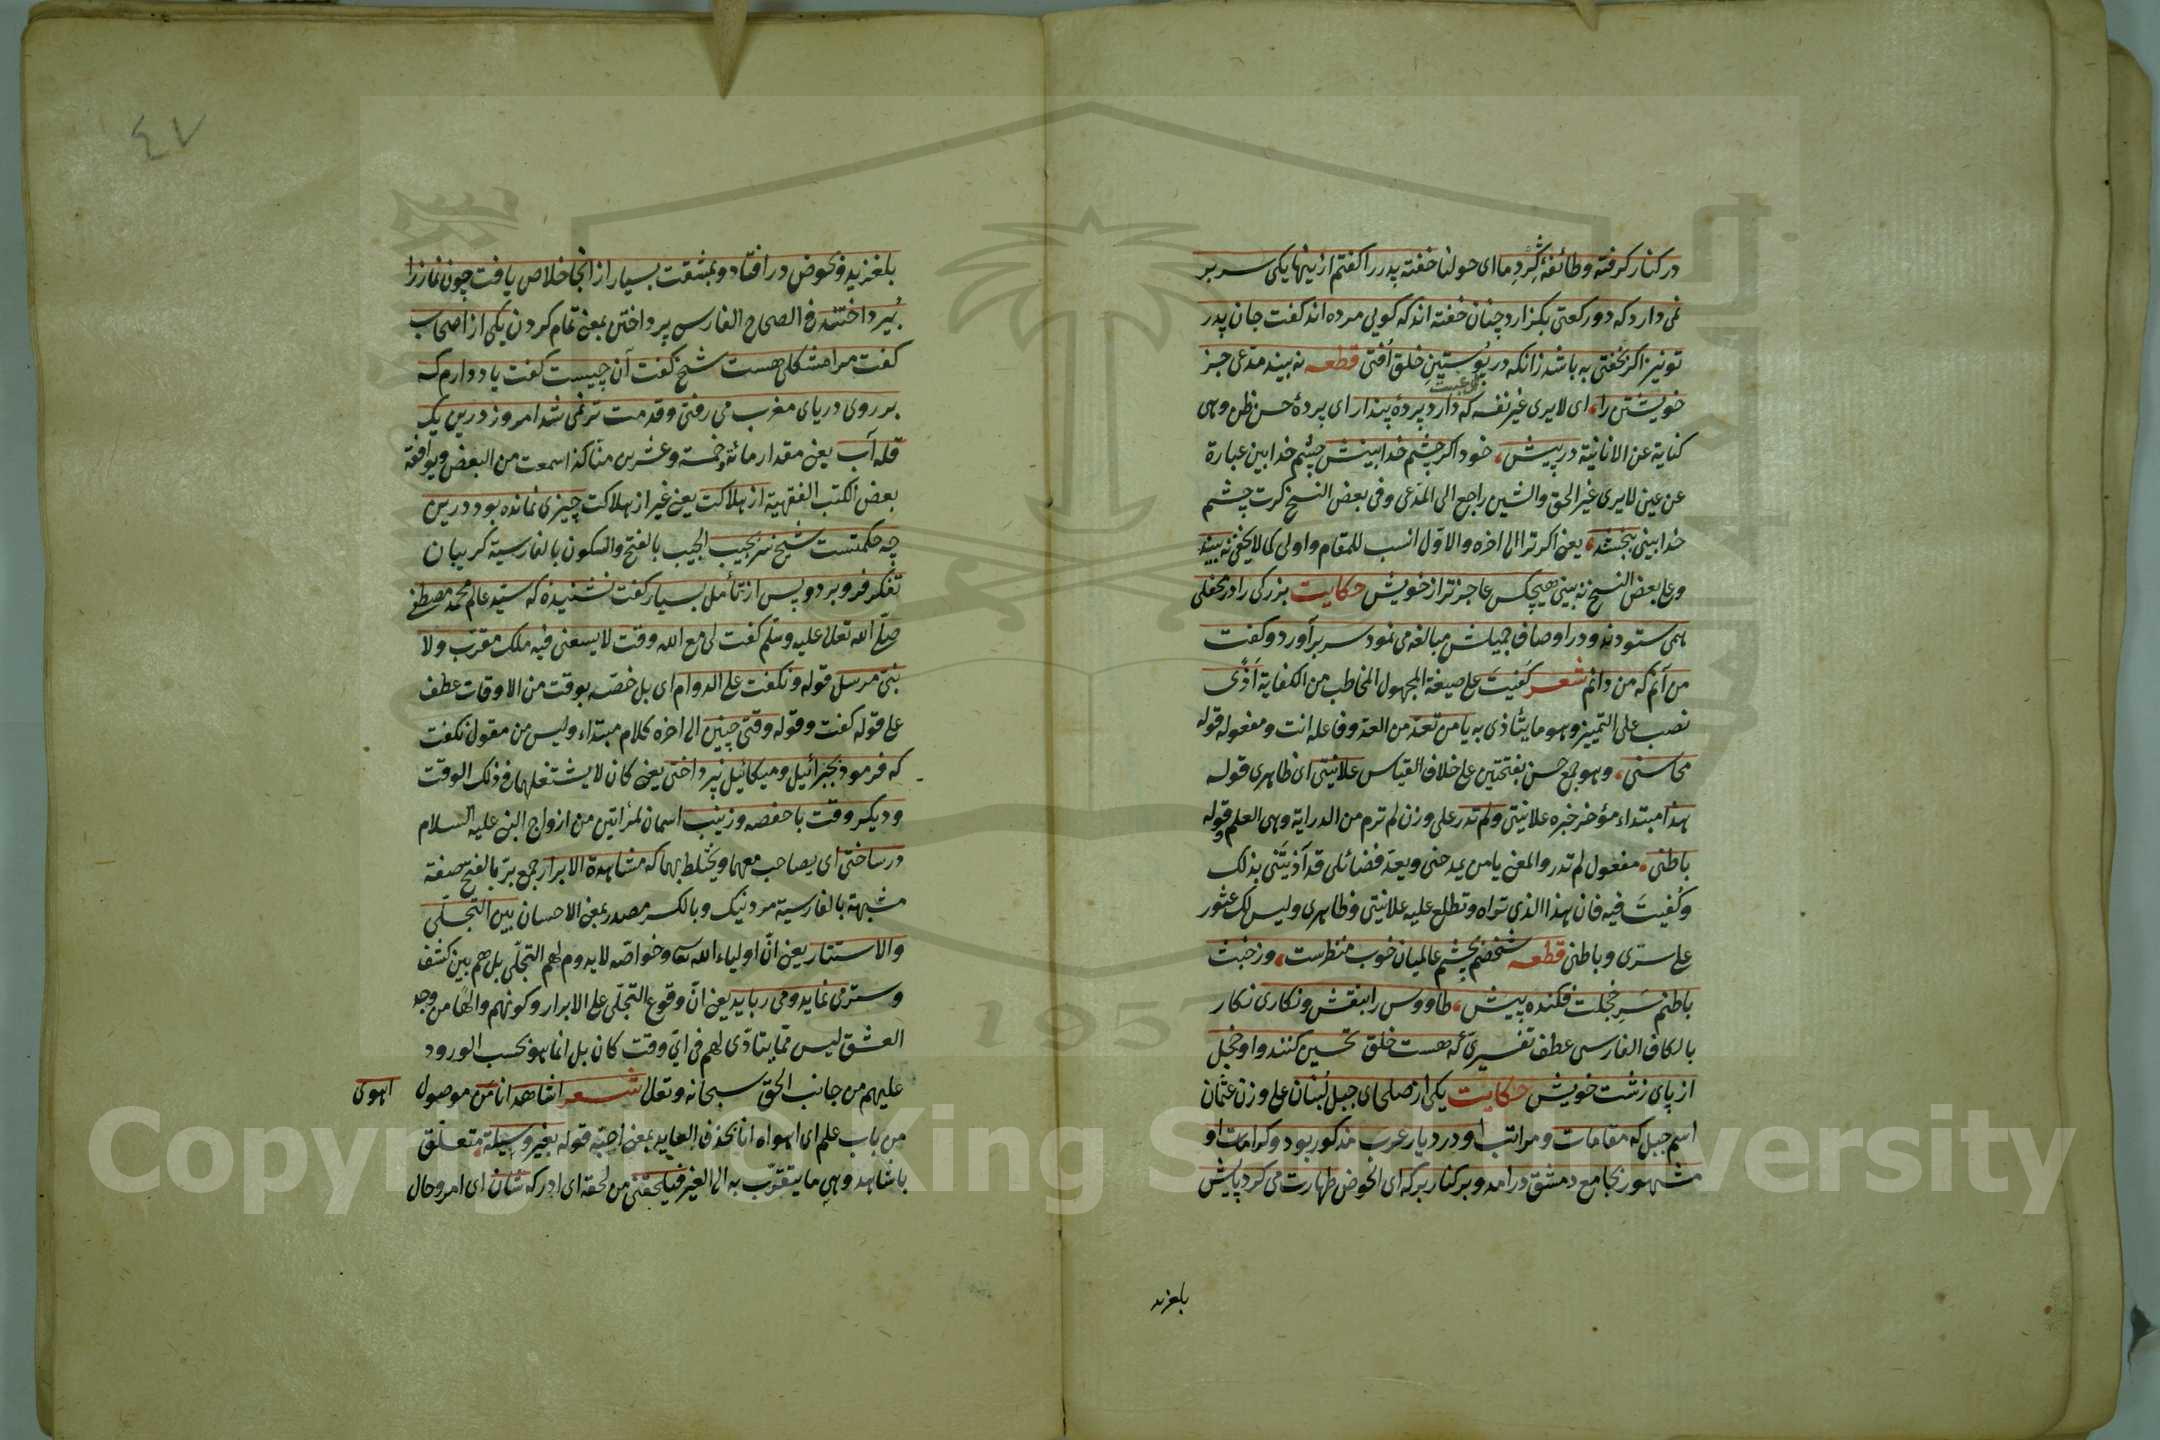 در کنار گرفته و طائفهٔ گِردِ ما ای حولنا خفته پدر را گفتم ازینها یکی سر بر
نمی دارد که دو رکعتی بگزارد چنان خفته اند که گویی مرده اند گفت جان پدر
تو نیز اگر بخفتی به باشد زانکه در پوستینِ خلق اُفتی قطعه نه بیند مدّعی جز
خویشتن را، ای لا یری غیر نفسه که دارد پردهٔ پندار ای پردهٔ حسن ظن وهی
کنایة عن الانانیة در پیش، خود اکر چشم خدا بینش چشم خدا بین عبارة
عن عین لا یری غیر الحق والشین راجع الی المدّعی وفی بعض النسخ کرت چشم
خدا بینی ببخشند، یعنی اکر ترا الی اخره والاوّل انسب للمقام واولی کما لا یخفی نه بیند
وعلی بعض النسخ نه بینی هیچکس عاجزتر از خویش حکایت بزرکی را در محفلی
همی ستودند و در اوصاف جمیلش مبالغه می نمود سر برآورد و گفت
من آنم که من دانم شعر کُفیتَ علی صیغة المجهول المخاطب من الکفایة اَذًی
نصب علی التمییز وهو ما یتأذی به یا من تعدّ من العد وفاعله انت ومفعوله قوله
محاسنی، وهو جمع حسن بفتحتین علی خلاف القیاس علانیتی ای ظاهری قوله
هذا مبتداء مؤخر خبره علانیتی ولم تدر علی وزن لم ترم من الدرایة وهی العلم وقوله
باطنی، مفعول لم تدر والمعنی یا من یمدحنی ویعدّ فضائلی قد آذیتَنی بذلک
وکُفیتَ فیه فان هذا الذی تراه وتطلع علیه علانیتی وظاهری ولیس لک عثور
علی سرّی وباطنی قطعه شخصم بچشم عالمیان خوب منظرست، وز خبث
باطنم سَرِ خجلت فکنده پیش، طاووس را بنقش و نکاری نکار
بالکاف الفارسی عطف تفسیری که هست خلق تحسین کنند و او خجل
از پای زشت خویش حکایت یکی از صلحای جبل لُبنان علی وزن عثمان
اسم جبل که مقامات و مراتب او در دیار عرب مذکور بود و کرامات او
مشهور بجامع دمشق درامد و بر کنار برکه ای الحوض طهارت می کرد پایش
بلغزید
٤٧
بلغزید و بحوض در افتاد و بمشقت بسیار از انجا خلاص یافت چون نماز را
بپرداختند فی الصحاح الفارسی پرداختن بمعنی تمام کردن یکی از اصحاب
گفت مرا مشکلی هست شیخ گفت آن چیست گفت یاد دارم که
بر روی دریای مغرب می رفتی و قدمت تر نمی شد امروز درین یک
قله آب یعنی مقدار مائة وخمسة وعشرین منّا کذا سمعت من البعض ویوافقه
بعض الکتب الفقهیة از هلاکت یعنی غیر از هلاکت چیزی نمانده بود درین
چه حکمتست شیخ سر بجیب الجیب بالفتح والسکون بالفارسیة کریبان
تفکر فرو برد و پس از تأمل بسیار گفت نشنیدهٔ که سیّد عالم محمد مصطفی
صلّی الله تعالی علیه وسلّم گفت لی مع الله وقت لا یسعنی فیه ملک مقرّب ولا
نبیّ مرسل قوله ونکفت علی الدوام ای بل خصّه بوقت من الاوقات عطف
علی قوله کفت وقوله وقتی چنین الی اخره کلام مبتداء ولیس من مقول نکفت
که فرمود بجبرائیل و میکائیل نپرداختی یعنی کان لا یشتغل بهما فی ذلک الوقت
و دیکر وقت با حفصه و زینب اسمان لمرأتین من ازواج النبی علیه السلام
در ساختی ای یصاحب معهما ویختلط بهما که مشاهدة الابرار جمع برّ بالفتح صفة
مشبهة بالفارسیة مرد نیک وبالکسر مصدر بمعنی الاحسان بین التجلّی
والاستتار یعنی انّ اولیاء الله وخواصّه لا یدوم لهم التجلّی بل هم بین کشف
وستر می نماید و می رباید یعنی انّ وقوع التجلّی علی الابرار وکونهم والهًا من وجد
العشق لیس ممّا یتأدّی لهم فی ایّ وقت کان بل انما هو بحسب الورود
علیهم من جانب الحق سبحانه وتعالی شعر اشاهد انا من موصول اهوی
من باب علم ای اهواه انا بحذف العاید بمعنی احبّه قوله بغیر وسیلة، متعلّق
باشاهد وهی ما یتقرّب به الی الغیر فیلحقنی من لحقه ای ادرکه شأن ای امر وحال